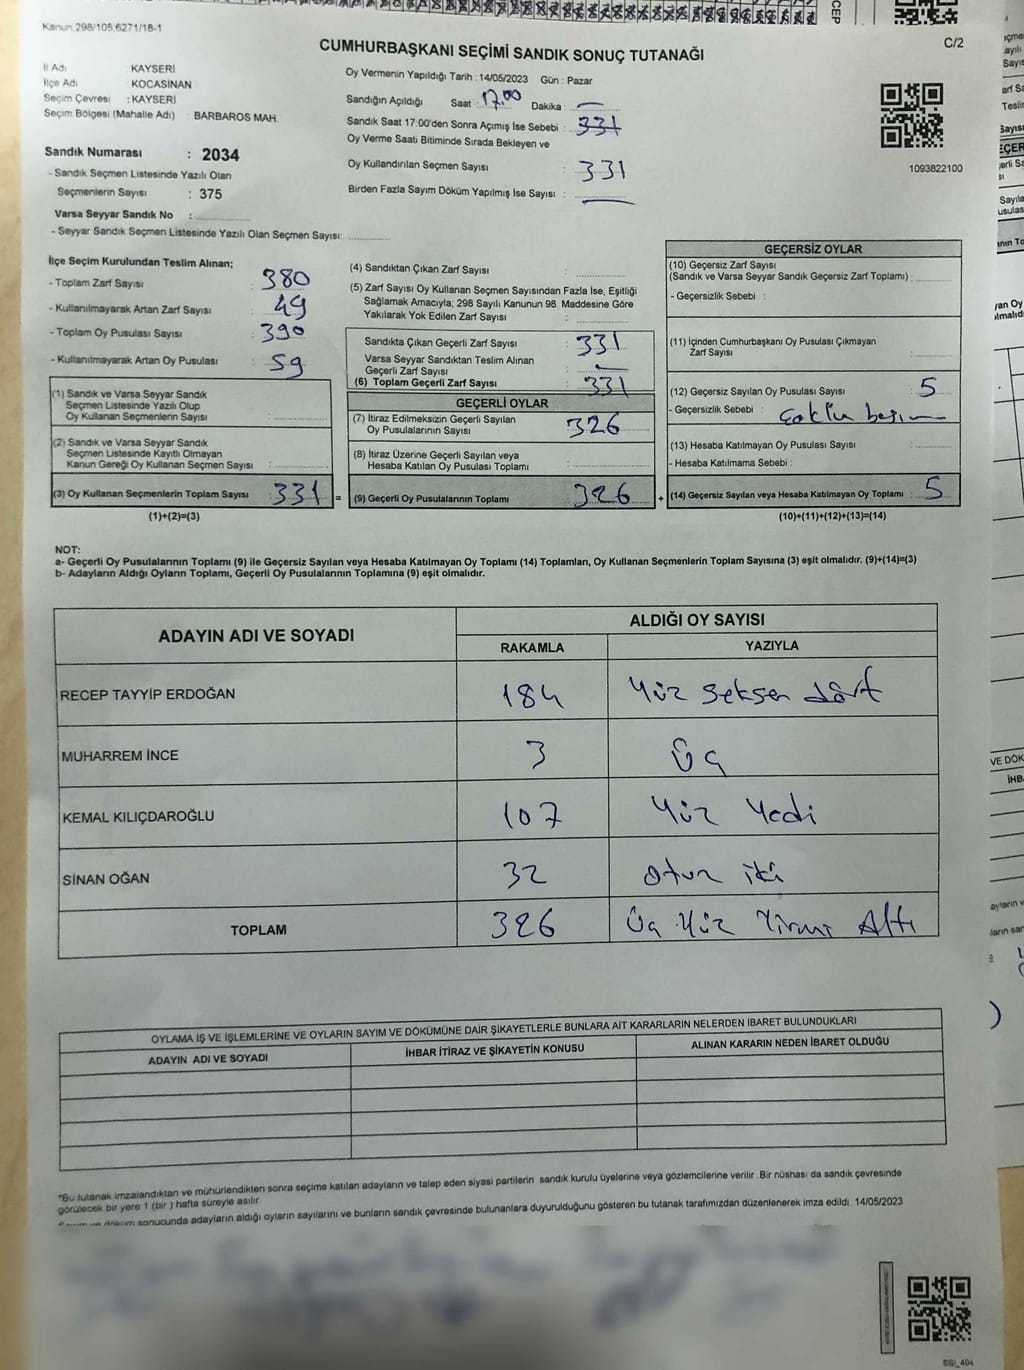 CEP
Kanun 298/105,6271/18-1
C/2
CUMHURBAŞKANI SEÇİMİ SANDIK SONUÇ TUTANAĞI
İl Adı KAYSERİ
İlçe Adı KOCASİNAN
Seçim Çevresi : KAYSERİ
Seçim Bölgesi (Mahalle Adı) : BARBAROS MAH.
Sandık Numarası : 2034
- Sandık Seçmen Listesinde Yazılı Olan
Seçmenlerin Sayısı : 375
Varsa Seyyar Sandık No :
- Seyyar Sandık Seçmen Listesinde Yazılı Olan Seçmen Sayısı:
Oy Vermenin Yapıldığı Tarih : 14/05/2023 Gün : Pazar
Sandığın Açıldığı Saat : 17.00 Dakika : —
Sandık Saat 17:00'den Sonra Açımış İse Sebebi : 331
Oy Verme Saati Bitiminde Sırada Bekleyen ve
Oy Kullandırılan Seçmen Sayısı : 331
Birden Fazla Sayım Döküm Yapılmış İse Sayısı : —
1093822100
İlçe Seçim Kurulundan Teslim Alınan;
- Toplam Zarf Sayısı : 380
- Kullanılmayarak Artan Zarf Sayısı : 49
- Toplam Oy Pusulası Sayısı : 390
- Kullanılmayarak Artan Oy Pusulası : 59
(1) Sandık ve Varsa Seyyar Sandık
Seçmen Listesinde Yazılı Olup
Oy Kullanan Seçmenlerin Sayısı :
(2) Sandık ve Varsa Seyyar Sandık
Seçmen Listesinde Kayıtlı Olmayan
Kanun Gereği Oy Kullanan Seçmen Sayısı :
(3) Oy Kullanan Seçmenlerin Toplam Sayısı : 331 =
(1)+(2)=(3)
(4) Sandıktan Çıkan Zarf Sayısı :
(5) Zarf Sayısı Oy Kullanan Seçmen Sayısından Fazla İse, Eşitliği
Sağlamak Amacıyla; 298 Sayılı Kanunun 98. Maddesine Göre
Yakılarak Yok Edilen Zarf Sayısı :
Sandıkta Çıkan Geçerli Zarf Sayısı : 331
Varsa Seyyar Sandıktan Teslim Alınan
Geçerli Zarf Sayısı : —
(6) Toplam Geçerli Zarf Sayısı : 331
GEÇERLİ OYLAR
(7) İtiraz Edilmeksizin Geçerli Sayılan
Oy Pusulalarının Sayısı : 326
(8) İtiraz Üzerine Geçerli Sayılan veya
Hesaba Katılan Oy Pusulası Toplamı :
(9) Geçerli Oy Pusulalarının Toplamı : 326 +
GEÇERSİZ OYLAR
(10) Geçersiz Zarf Sayısı
(Sandık ve Varsa Seyyar Sandık Geçersiz Zarf Toplamı) :
- Geçersizlik Sebebi :
(11) İçinden Cumhurbaşkanı Oy Pusulası Çıkmayan
Zarf Sayısı :
(12) Geçersiz Sayılan Oy Pusulası Sayısı : 5
- Geçersizlik Sebebi :
(13) Hesaba Katılmayan Oy Pusulası Sayısı :
- Hesaba Katılmama Sebebi :
(14) Geçersiz Sayılan veya Hesaba Katılmayan Oy Toplamı : 5
(10)+(11)+(12)+(13)=(14)
NOT:
a- Geçerli Oy Pusulalarının Toplamı (9) ile Geçersiz Sayılan veya Hesaba Katılmayan Oy Toplamı (14) Toplamları, Oy Kullanan Seçmenlerin Toplam Sayısına (3) eşit olmalıdır. (9)+(14)=(3)
b- Adayların Aldığı Oyların Toplamı, Geçerli Oy Pusulalarının Toplamına (9) eşit olmalıdır.
ADAYIN ADI VE SOYADI ALDIĞI OY SAYISI
RAKAMLA YAZIYLA
RECEP TAYYİP ERDOĞAN 184 Yüz Seksen dört
MUHARREM İNCE 3 Üç
KEMAL KILIÇDAROĞLU 107 Yüz Yedi
SİNAN OĞAN 32 otuz iki
TOPLAM 326 Üç Yüz Yirmi Altı
OYLAMA İŞ VE İŞLEMLERİNE VE OYLARIN SAYIM VE DÖKÜMÜNE DAİR ŞİKAYETLERLE BUNLARA AİT KARARLARIN NELERDEN İBARET BULUNDUKLARI
ADAYIN ADI VE SOYADI İHBAR İTİRAZ VE ŞİKAYETİN KONUSU ALINAN KARARIN NEDEN İBARET OLDUĞU
*Bu tutanak imzalandıktan ve mühürlendikten sonra seçime katılan adayların ve talep eden siyasi partilerin sandık kurulu üyelerine veya gözlemcilerine verilir. Bir nüshası da sandık çevresinde
görülecek bir yere 1 (bir ) hafta süreyle asılır.
sonucunda adayların aldığı oyların sayılarını ve bunların sandık çevresinde bulunanlara duyurulduğunu gösteren bu tutanak tarafımızdan düzenlenerek imza edildi. 14/05/2023